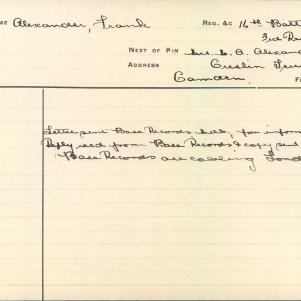 ME Alexander, Frank
REG. &C 16th Batt
3rd Re
NEXT OF KIN Mrs. L. A. Alexand
ADDRESS
Camden.
Letter sent Base Records Melb, for inform
Reply recd from Base Records & copy sent
Base Records are cabling Lond